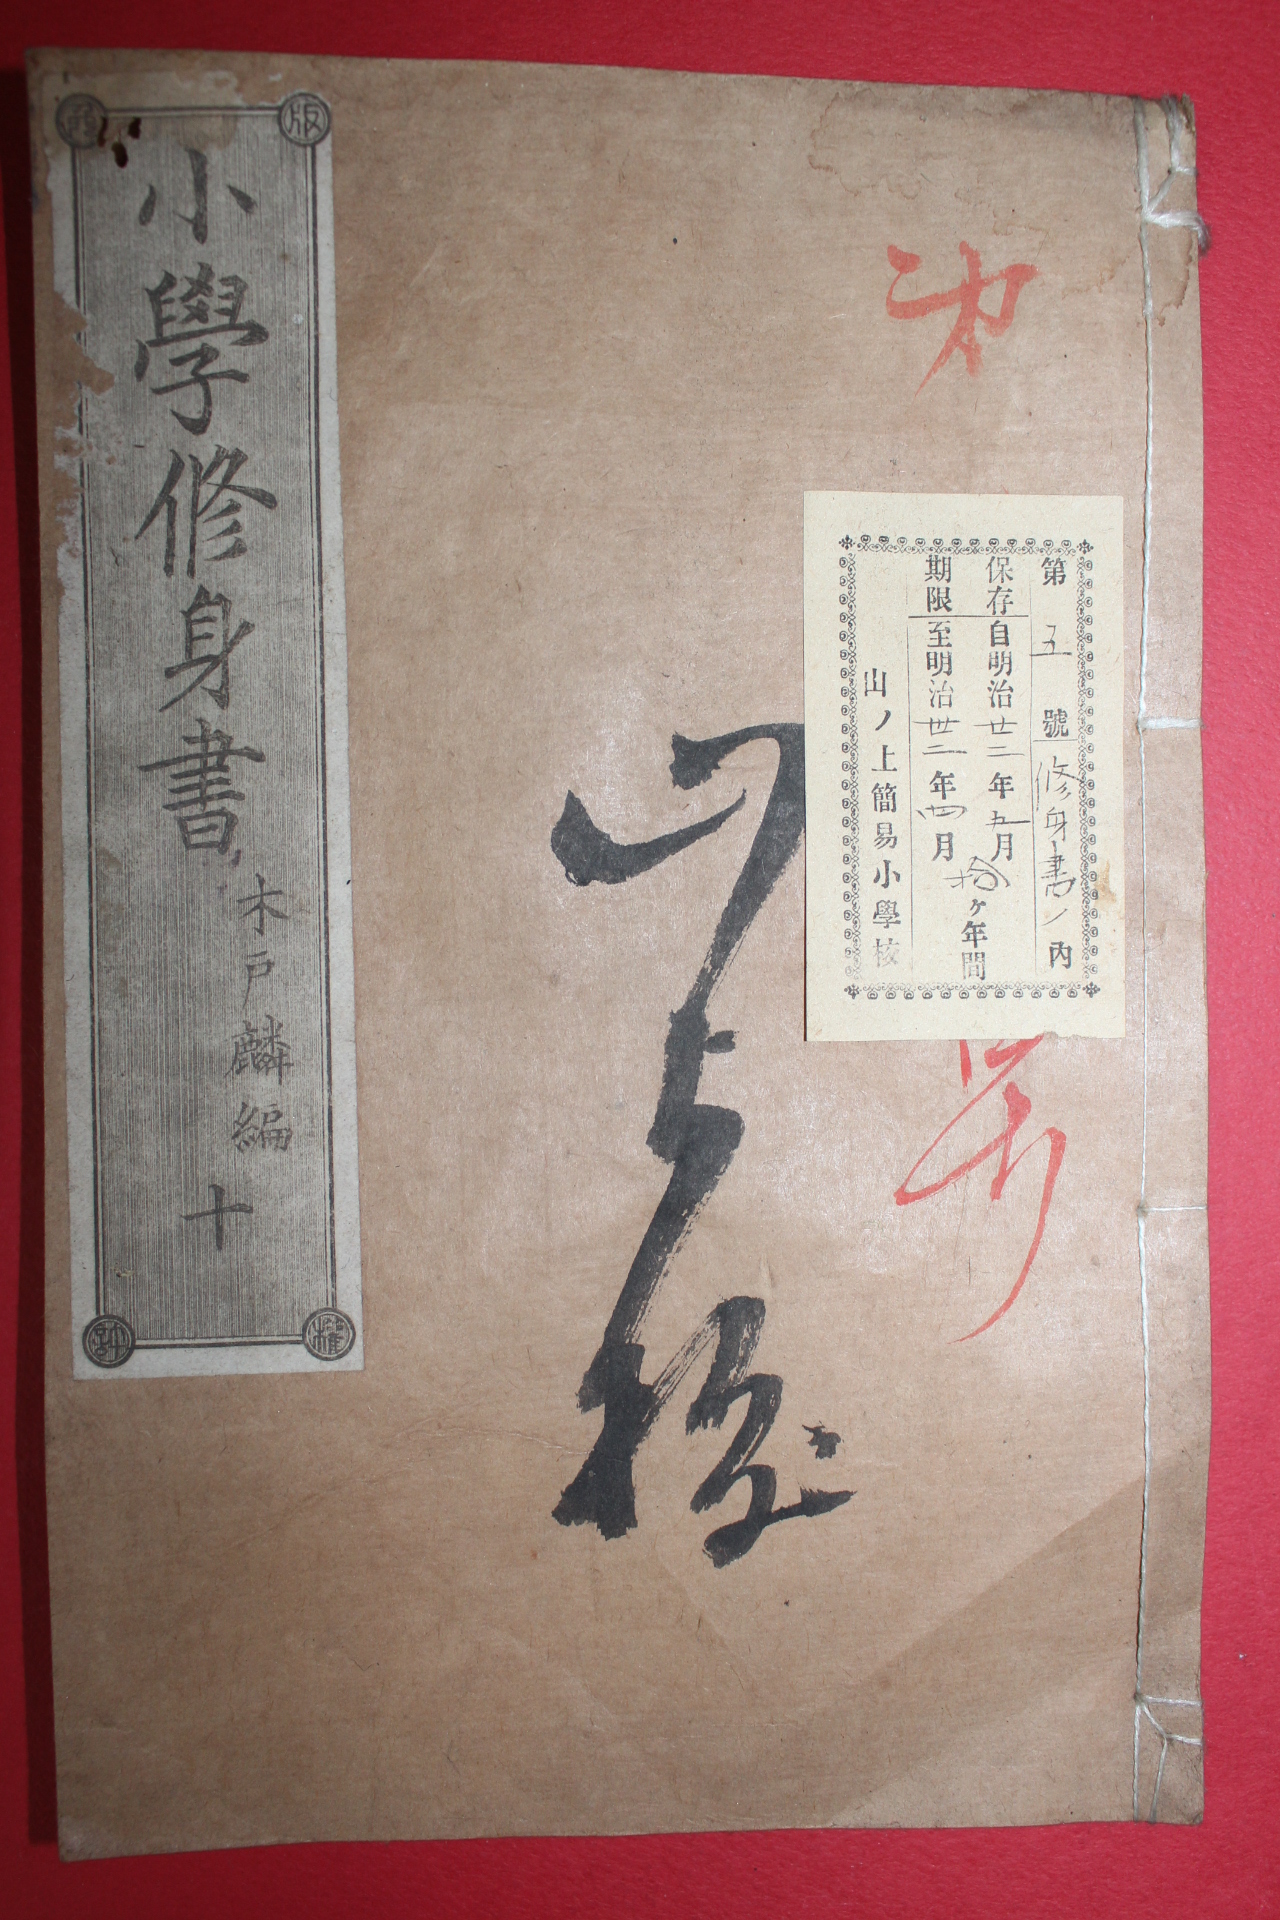 第五號修身書ノ內
保存期限
自明治廿二年五月
至明治卅二年四月
拾ヶ年間
山ノ上簡易小學校
山上校
版
權
小學修身書
木戸麟編
十